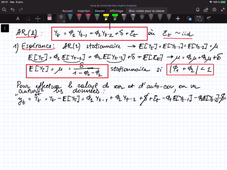 AR(2): Yt = φ1 Yt-1 + φ2 Yt-2 + δ + Et où Et ~ iid
1) Espérance: AR(2) stationnaire → E[Yt] = E[Yt-1] = E[Yt-2] = μ
E[Yt] = φ1 E[Yt-1] + φ2 E[Yt-2] + δ + E[Et] → μ = φ1 μ + φ2 μ + δ
E[Yt] = μ = δ / (1 - φ1 - φ2) stationnaire si |φ1 + φ2| < 1
Pour effectuer le calcul de var et d'auto-cov, on va
centrer les données:
= Yt - E[Yt] = φ1 Yt-1 + φ2 Yt-2 + δ + Et - φ1 E[Yt-1] - φ2 E[Yt-2]